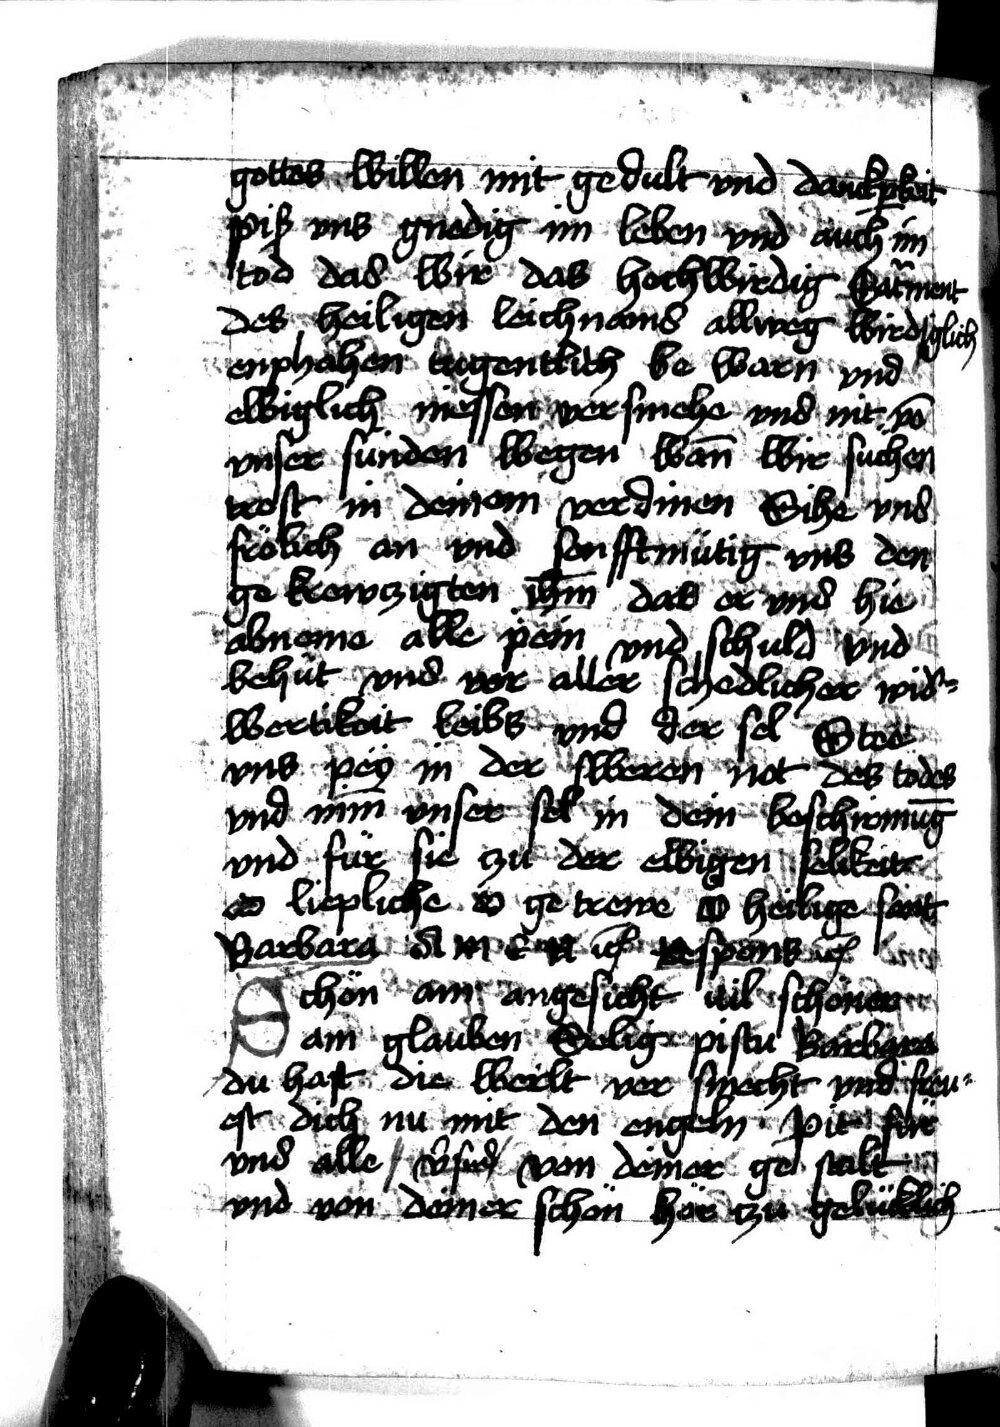 gottes willen mit gedult vnd danckperkeit
piß vns gnedig im leben vnd auch im
tod das wir das hochwirdig Sacrament
des heiligen leichnams allweg wirdiglich
enphahen tugentlich be warn vnd
ewiglich niessen versmehe vns nit võ
vnser sünden wegen wañ wir süchen
trost in deinem verdinen Sihe vns
frölich an vnd senfftmütig vns den
ge krewczigten ihm das er vns hie
abneme alle pein vnd schuld vnd
behüt vns vor aller schedlicher wid=
wertikeit leibs vnd der sel Stee
vns pey in der sweren not des todes
vnd nim vnser sel in dein beschirmũg
vnd für sie zu der ewigen selikeit
O liepliche o ge trewe O heilige sant
Barbara A M E N
Schön am angesicht vil schöner
am glauben Selig pistu Barbara
du hast die werlt ver smecht vnd freu=
est dich nu mit den engeln pit für
vns alle von deiner ge stalt
vnd von deiner schön hör zu gelücklich